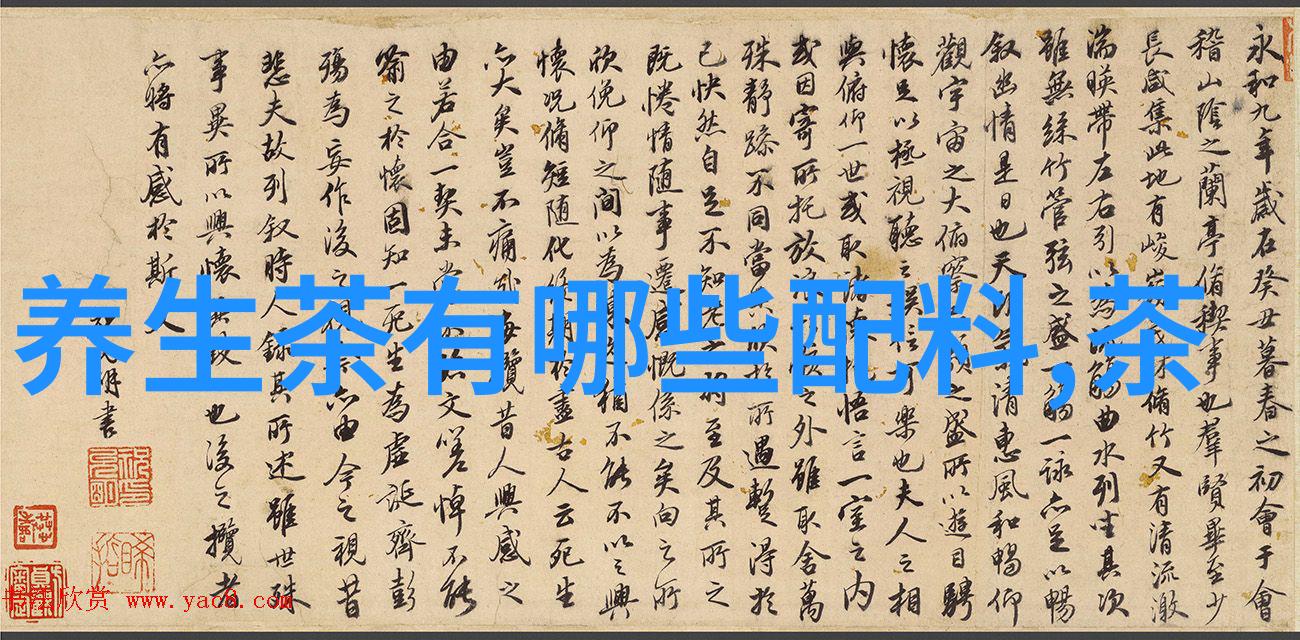 永和九年歲在癸丑暮春之初會于會
稽山陰之蘭亭脩稧事也羣賢畢至少
長咸集此地有峻脩竹又有清流激
湍暎帶左右引以為流觴曲水列坐其次
雖無絲竹管弦之盛一觴一詠亦足以暢
敘幽情是日也天朗氣清惠風和暢仰
觀宇宙之大俯察之盛所以遊目騁
懷足以極視聽之娛信可樂也夫人之相
與俯仰一世或取諸悟言一室之內
或因寄所托放浪之外雖取舍萬
殊靜躁不同當其於所遇暫得於
已快然自足不知老之將至及其所之
既惓情隨事遷感慨係之矣向之所
欣俛仰之間以為不能不以之興
懷況脩短隨化終期於盡古人云死生
亦大矣豈不痛哉每覽昔人興感之
由若合一契未文嗟悼不能
喻之於懷固知一死生為虛誕齊彭
殤為妄作後之亦由今之視昔
悲夫故列敘時人錄其所述雖世殊
事異所以興懷也後之攬者
亦將有感於斯文
明書
养生茶有哪些配料,茶
欣赏 www.yac8.com